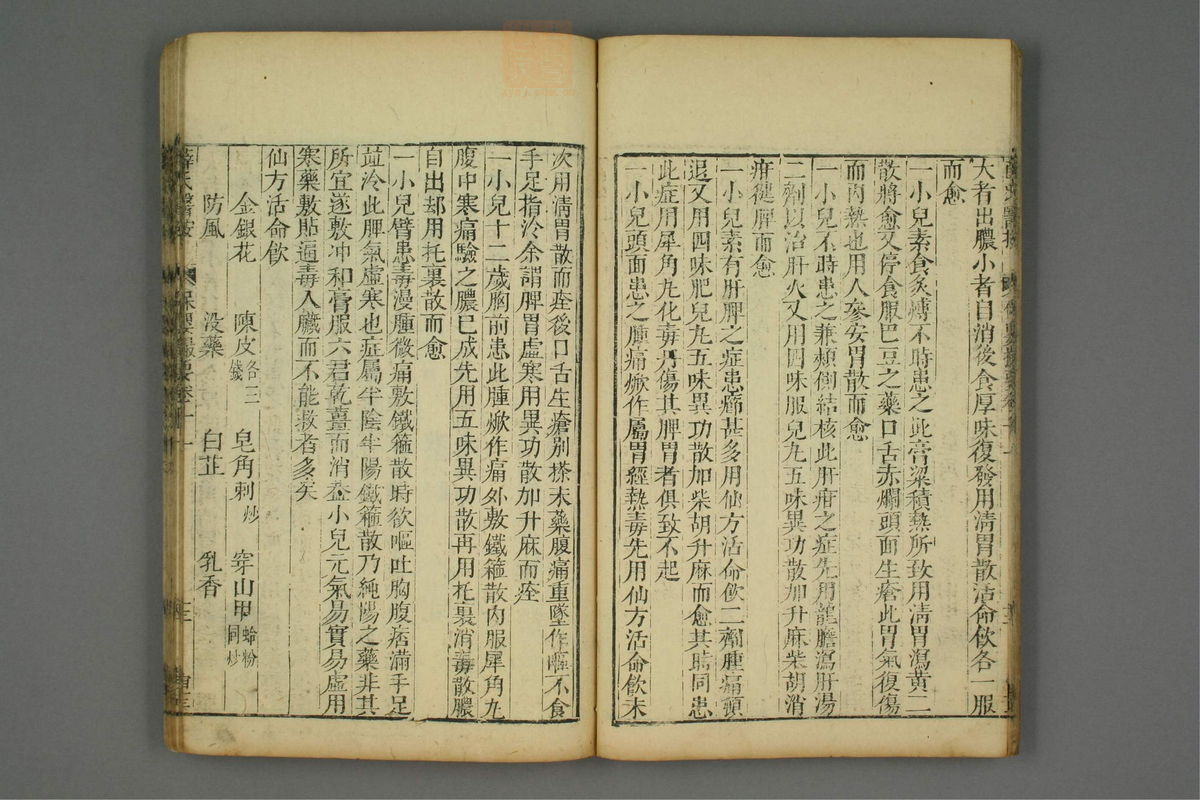 大者出膿小者自消後食厚味復發用清胃散活命飲各一服
而愈
一小兒素食炙煿不時患之此膏粱積熱所致用清胃瀉黃二
散將愈又停食服巴豆之藥口舌赤爛頭面生瘡此胃氣復傷
而內熱也用人參安胃散而愈
一小兒不時患之兼頰側結核此肝疳之症先用龍膽瀉肝湯
二劑以治肝火又用四味肥兒丸五味異功散加升麻柴胡消
疳健脾而愈
一小兒素有肝脾之症患癤甚多用仙方活命飲二劑腫痛頓
退又用四味肥兒丸五味異功散加柴胡升麻而愈其時同患
此症用犀角丸化毒丹傷其脾胃者俱致不起
一小兒頭面患之腫痛焮作屬胃經熱毒先用仙方活命飲末
次用清胃散而痊後口舌生瘡別搽末藥腹痛重墜作嘔不食
手足指冷余謂脾胃虛寒用異功散加升麻而痊
一小兒十二歲胸前患此腫焮作痛外敷鐵箍散內服犀角丸
腹中寒痛驗之膿已成先用五味異功散再用托裏消毒散膿
自出却用托裏散而愈
一小兒臂患毒漫腫微痛敷鐵箍散時欲嘔吐胸腹痞滿手足
並冷此脾氣虛寒也症屬半陰半陽鐵箍散乃純陽之藥非其
所宜遂敷冲和膏服六君乾薑而消蓋小兒元氣易實易虛用
寒藥敷貼逼毒入臟而不能救者多矣
仙方活命飲
金銀花 陳皮各三錢 皂角刺炒 穿山甲蛤粉同炒
防風 沒藥 白芷 乳香
薛氏醫按 保嬰撮要卷十一